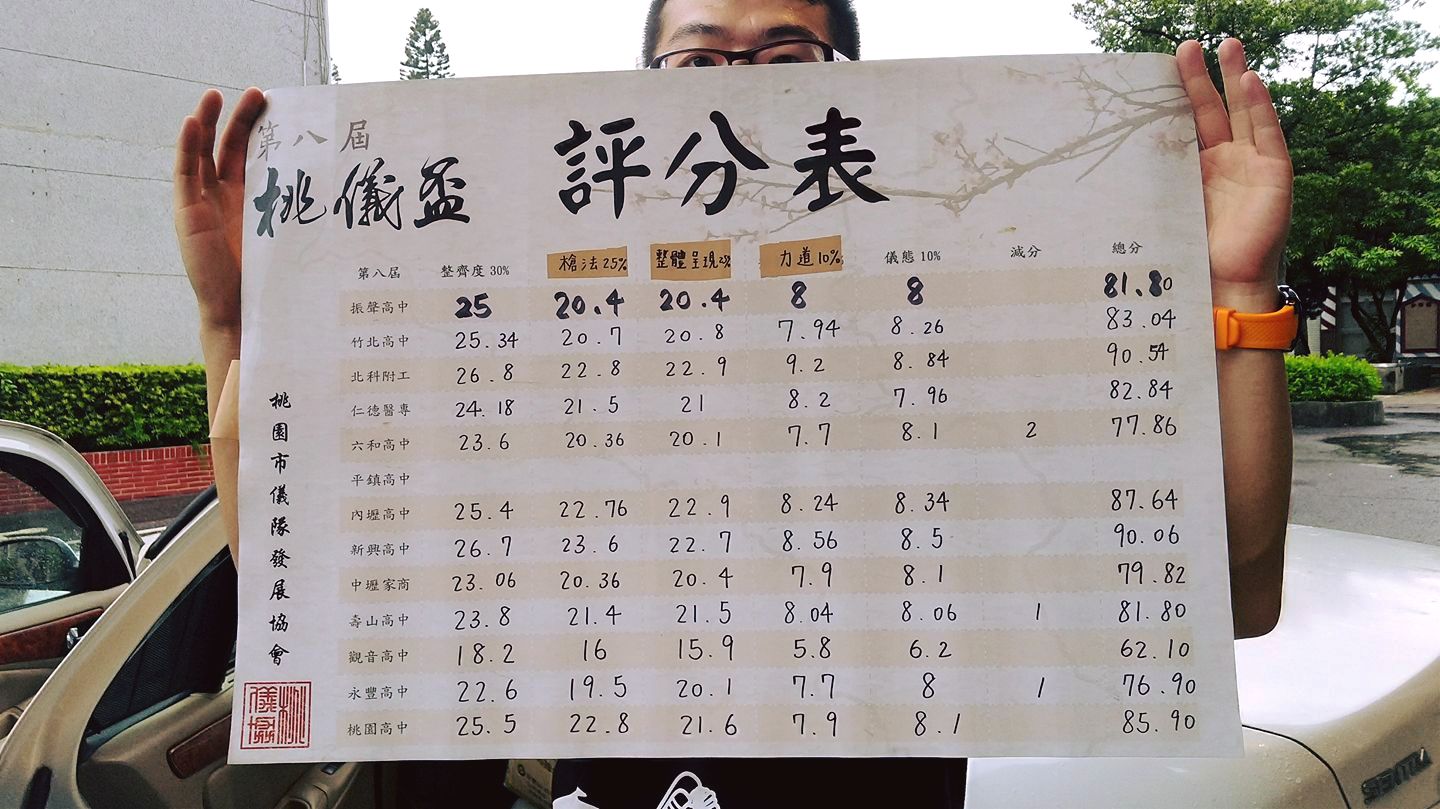 第八屆
桃儀盃 評分表
第八屆 整齊度 30% 槍法 25% 整體呈現 25% 力道 10% 儀態 10% 減分 總分
振聲高中 25 20.4 20.4 8 8 81.80
竹北高中 25.34 20.7 20.8 7.94 8.26 83.04
北科附工 26.8 22.8 22.9 9.2 8.84 90.54
仁德醫專 24.18 21.5 21 8.2 7.96 82.84
六和高中 23.6 20.36 20.1 7.7 8.1 2 77.86
平鎮高中
內壢高中 25.4 22.76 22.9 8.24 8.34 87.64
新興高中 26.7 23.6 22.7 8.56 8.5 90.06
中壢家商 23.06 20.36 20.4 7.9 8.1 79.82
壽山高中 23.8 21.4 21.5 8.04 8.06 1 81.80
觀音高中 18.2 16 15.9 5.8 6.2 62.10
永豐高中 22.6 19.5 20.1 7.7 8 1 76.90
桃園高中 25.5 22.8 21.6 7.9 8.1 85.90
桃園市儀隊發展協會